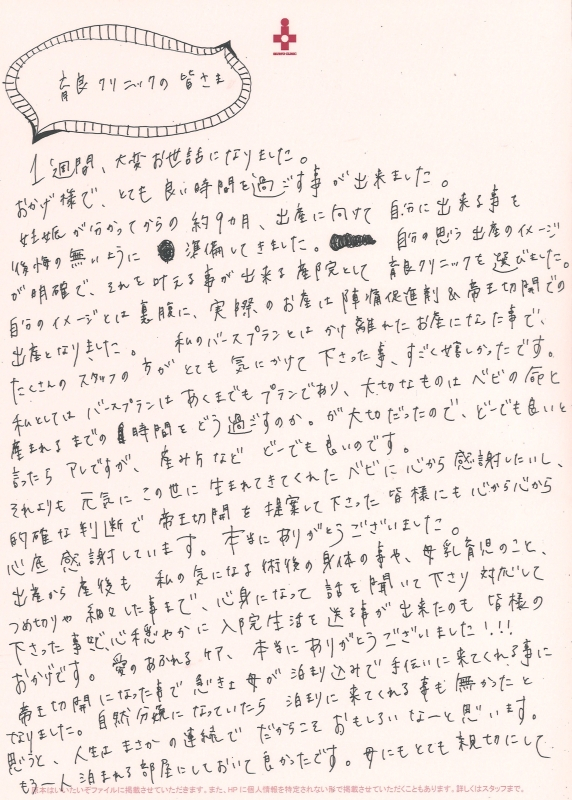 育良クリニックの皆さま
1週間、大変お世話になりました。
おかげ様で、とても良い時間を過ごす事が出来ました。
妊娠が分かってからの約9カ月、出産に向けて自分に出来る事を
後悔の無いように準備してきました。自分の思う出産のイメージ
が明確で、それを叶える事が出来る産院として育良クリニックを選びました。
自分のイメージとは裏腹に、実際のお産は陣痛促進剤&帝王切開での
出産となりました。私のバースプランとはかけ離れたお産になった事で、
たくさんのスタッフの方がとても気にかけて下さった事、すごく嬉しかったです。
私としてはバースプランはあくまでもプランであり、大切なものはベビの命と
産まれるまでの時間をどう過ごすのか。が大切だったので、どーでも良いと
言ったらアレですが、産み方などどーでも良いのです。
それよりも元気にこの世に生まれてきてくれたベビに心から感謝したいし、
的確な判断で帝王切開を提案して下さった皆様にも心から心から
心底感謝しています。本当にありがとうございました。
出産から産後も私の気になる術後の身体の事や、母乳育児のこと、
つめ切りや細々した事まで、心身になって話を聞いて下さり対応して
下さった事で、心穏やかに入院生活を送る事が出来たのも皆様の
おかげです。愛のあふれるケア、本当にありがとうございました!!!
帝王切開になった事で急きょ母が泊まり込みで手伝いに来てくれる事に
なりました。自然分娩になっていたら泊まりに来てくれる事も無かったと
思うと、人生はまさかの連続でだからこそおもしろいなーと思います。
もう一人泊まれる部屋にしておいて良かったです。母にもとても親切にして
原本はいいたいぞファイルに掲載させていただきます。また、HPに個人情報を特定されない形で掲載させていただくこともあります。詳しくはスタッフまで。